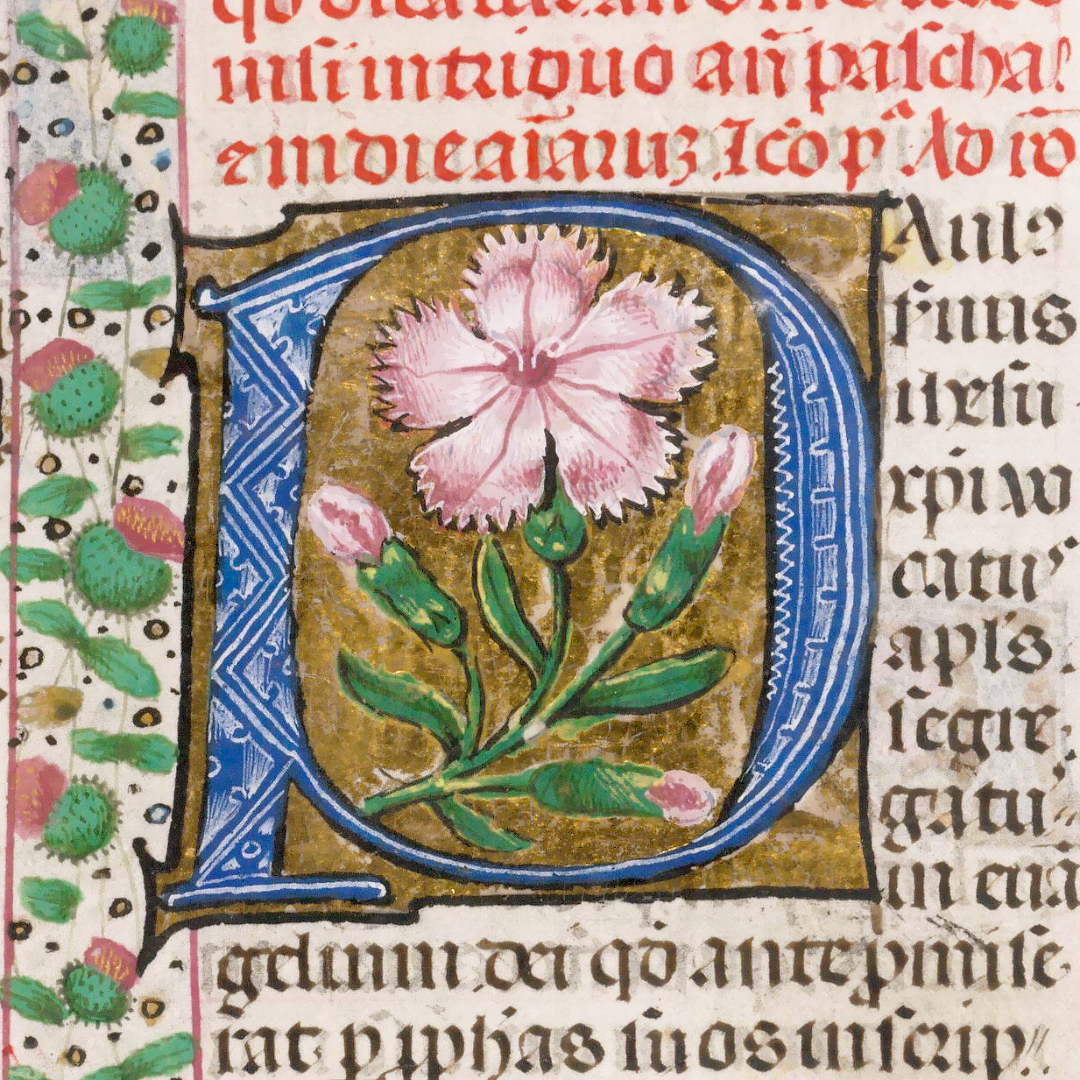 nisi in triduo añ pascha
⁊ in die aĩaruꝫ Icõ pᵃ Ad rõ
PAulꝰ
s̃uus
ihesu
xp̃i vo
catus
apl's
segre
gatu
in euã
gelium dei qd̃ ante p̃mise
rat p pphãs suos in scrip